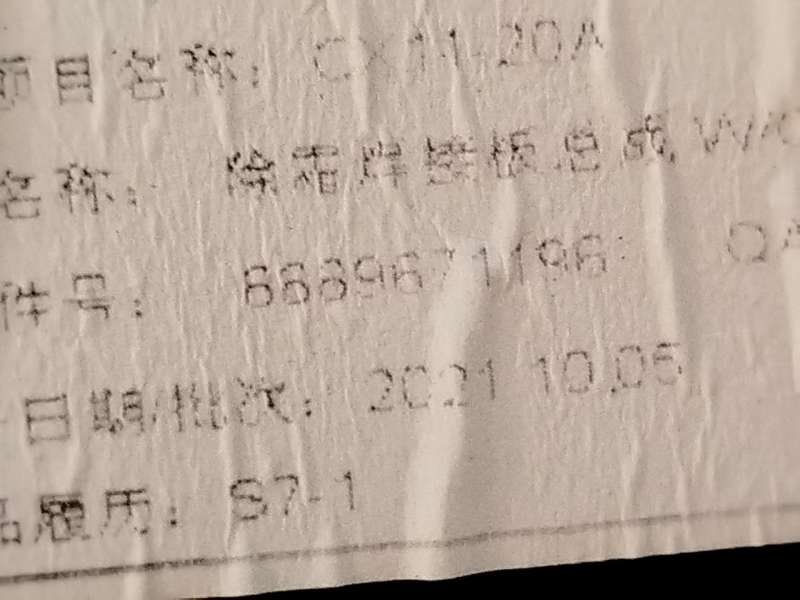 项目名称: CX11-20A
名称: 除霜焊接板总成 W/O
件号: QA
日期/批次: 2021.10.05
品履历: S7-1